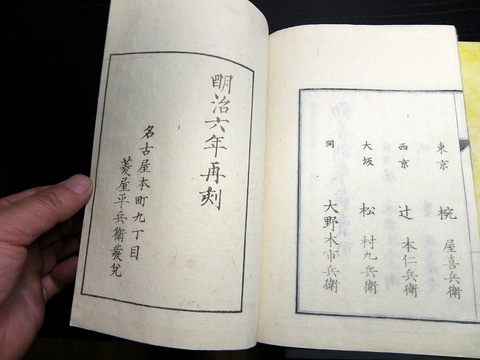 東京 椀屋喜兵衛
西京 辻本仁兵衛
大坂 松村九兵衛
同 大野木市兵衛
明治六年再刻
名古屋本町九丁目
菱屋平兵衛發兌